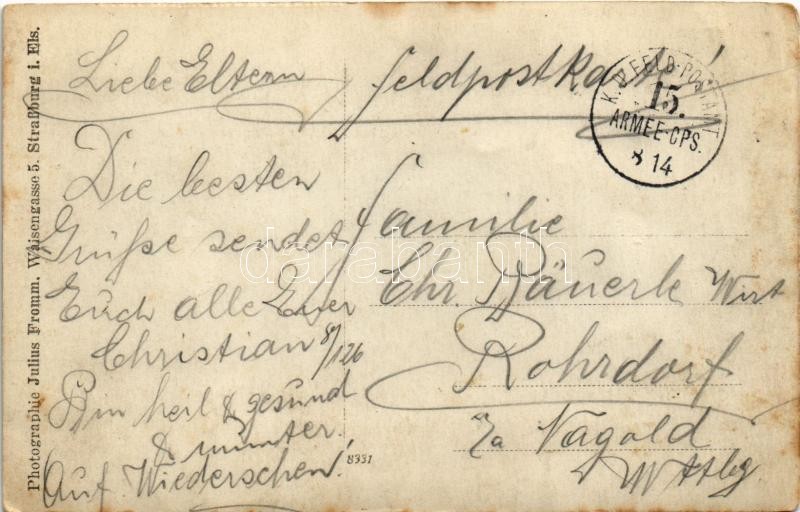 Photographie Julius Fromm, Waisengasse 5. Straßburg i. Els.
Liebe Eltern
Die besten
Grüße sendet
Euch alle Euer
Christian 8/126
Bin heil & gesund
& munter.
Auf Wiedersehen!
8331
Feldpostkarte!
K.D. FELD-POSTAMT
15.
ARMEE-CPS.
8 14
Familie
Chr. Bäuerle Wirt
Rohrdorf
Nagold
Wttbg
darabanth